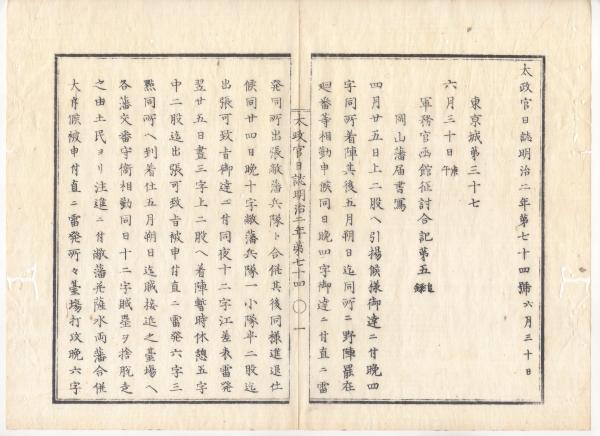 太政官日誌明治二年第七十四號 六月三十日
東京城第三十七
六月三十日 庚午
軍務官函館征討合記第五 録
岡山藩届書寫
四月廿五日上二股ヘ引揚候様御達ニ付晩四
字同所着陣其後五月朔日迄同所ニ野陣羅在
廻番等相勤申候同日晩四字御達ニ付直ニ雷
太政官日誌明治二年第七十四 〇 一
發同所出張敝藩兵隊ト合併其後同様進退仕
候同廿四日晩十字敝藩兵隊一小隊半二股迄
出張可致旨御達ニ付同夜十二字江差表雷發
翌廿五日晝三字上二股ヘ着陣暫時休憩五字
中二股迄出張可致旨被申付直ニ雷發六字三
㸃同所ヘ到着仕五月朔日迄賊接近之臺場ヘ
各藩交番守衛相勤同日十二字賊壘ヲ捨脱走
之由土民ヨリ注進ニ付敝藩并薩水両藩合併
大斥候被申付直ニ雷發所々臺場打攻晩六字